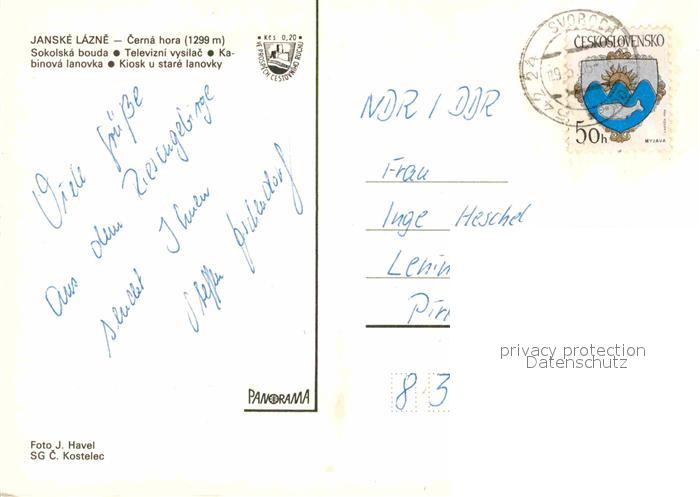 JANSKÉ LÁZNĚ — Černá hora (1299 m)
Sokolská bouda ● Televizní vysílač ● Ka-
binová lanovka ● Kiosk u staré lanovky
• Kčs 0,20 •
VE PROSPĚCH CESTOVNÍHO RUCHU
Viele Grüße
aus dem Riesengebirge
sendet Ihnen
Steffen
PANORAMA
Foto J. Havel
SG Č. Kostelec
SVOBODA
ČESKOSLOVENSKO
50h
MYJAVA
NDR / DDR
Frau
Inge Heschel
Lenin
Pir
83
privacy protection
Datenschutz